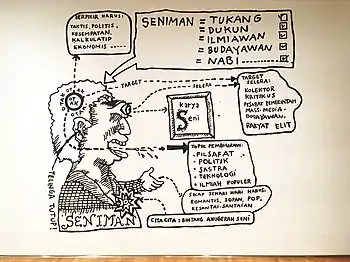 BERPIKIR HARUS:
TAKTIS, POLITIS,
KESEMPATAN,
KALKULATIF
EKONOMIS
SENIMAN = TUKANG
= DUKUN
= ILMIAWAN
= BUDAYAWAN
= NABI
TARGET
SELERA
TARGET
SELERA:
KOLEKTOR
KRITIKUS
PEJABAT PEMERINTAH
MASS-MEDIA
BUDAYAWAN,
RAKYAT ELIT
Karya
Seni
TOPIC PEMBICARAAN:
• FILSAFAT
• POLITIK
• SASTRA
• TEKNOLOGI
• ILMIAH POPULER
TELINGA TUTUP!
SIKAP SEHARI HARI HARUS:
ROMANTIS, SOPAN, POP,
KESANTAI-SANTAIAN
SENIMAN
CITA CITA: BINTANG ANUGERAH SENI